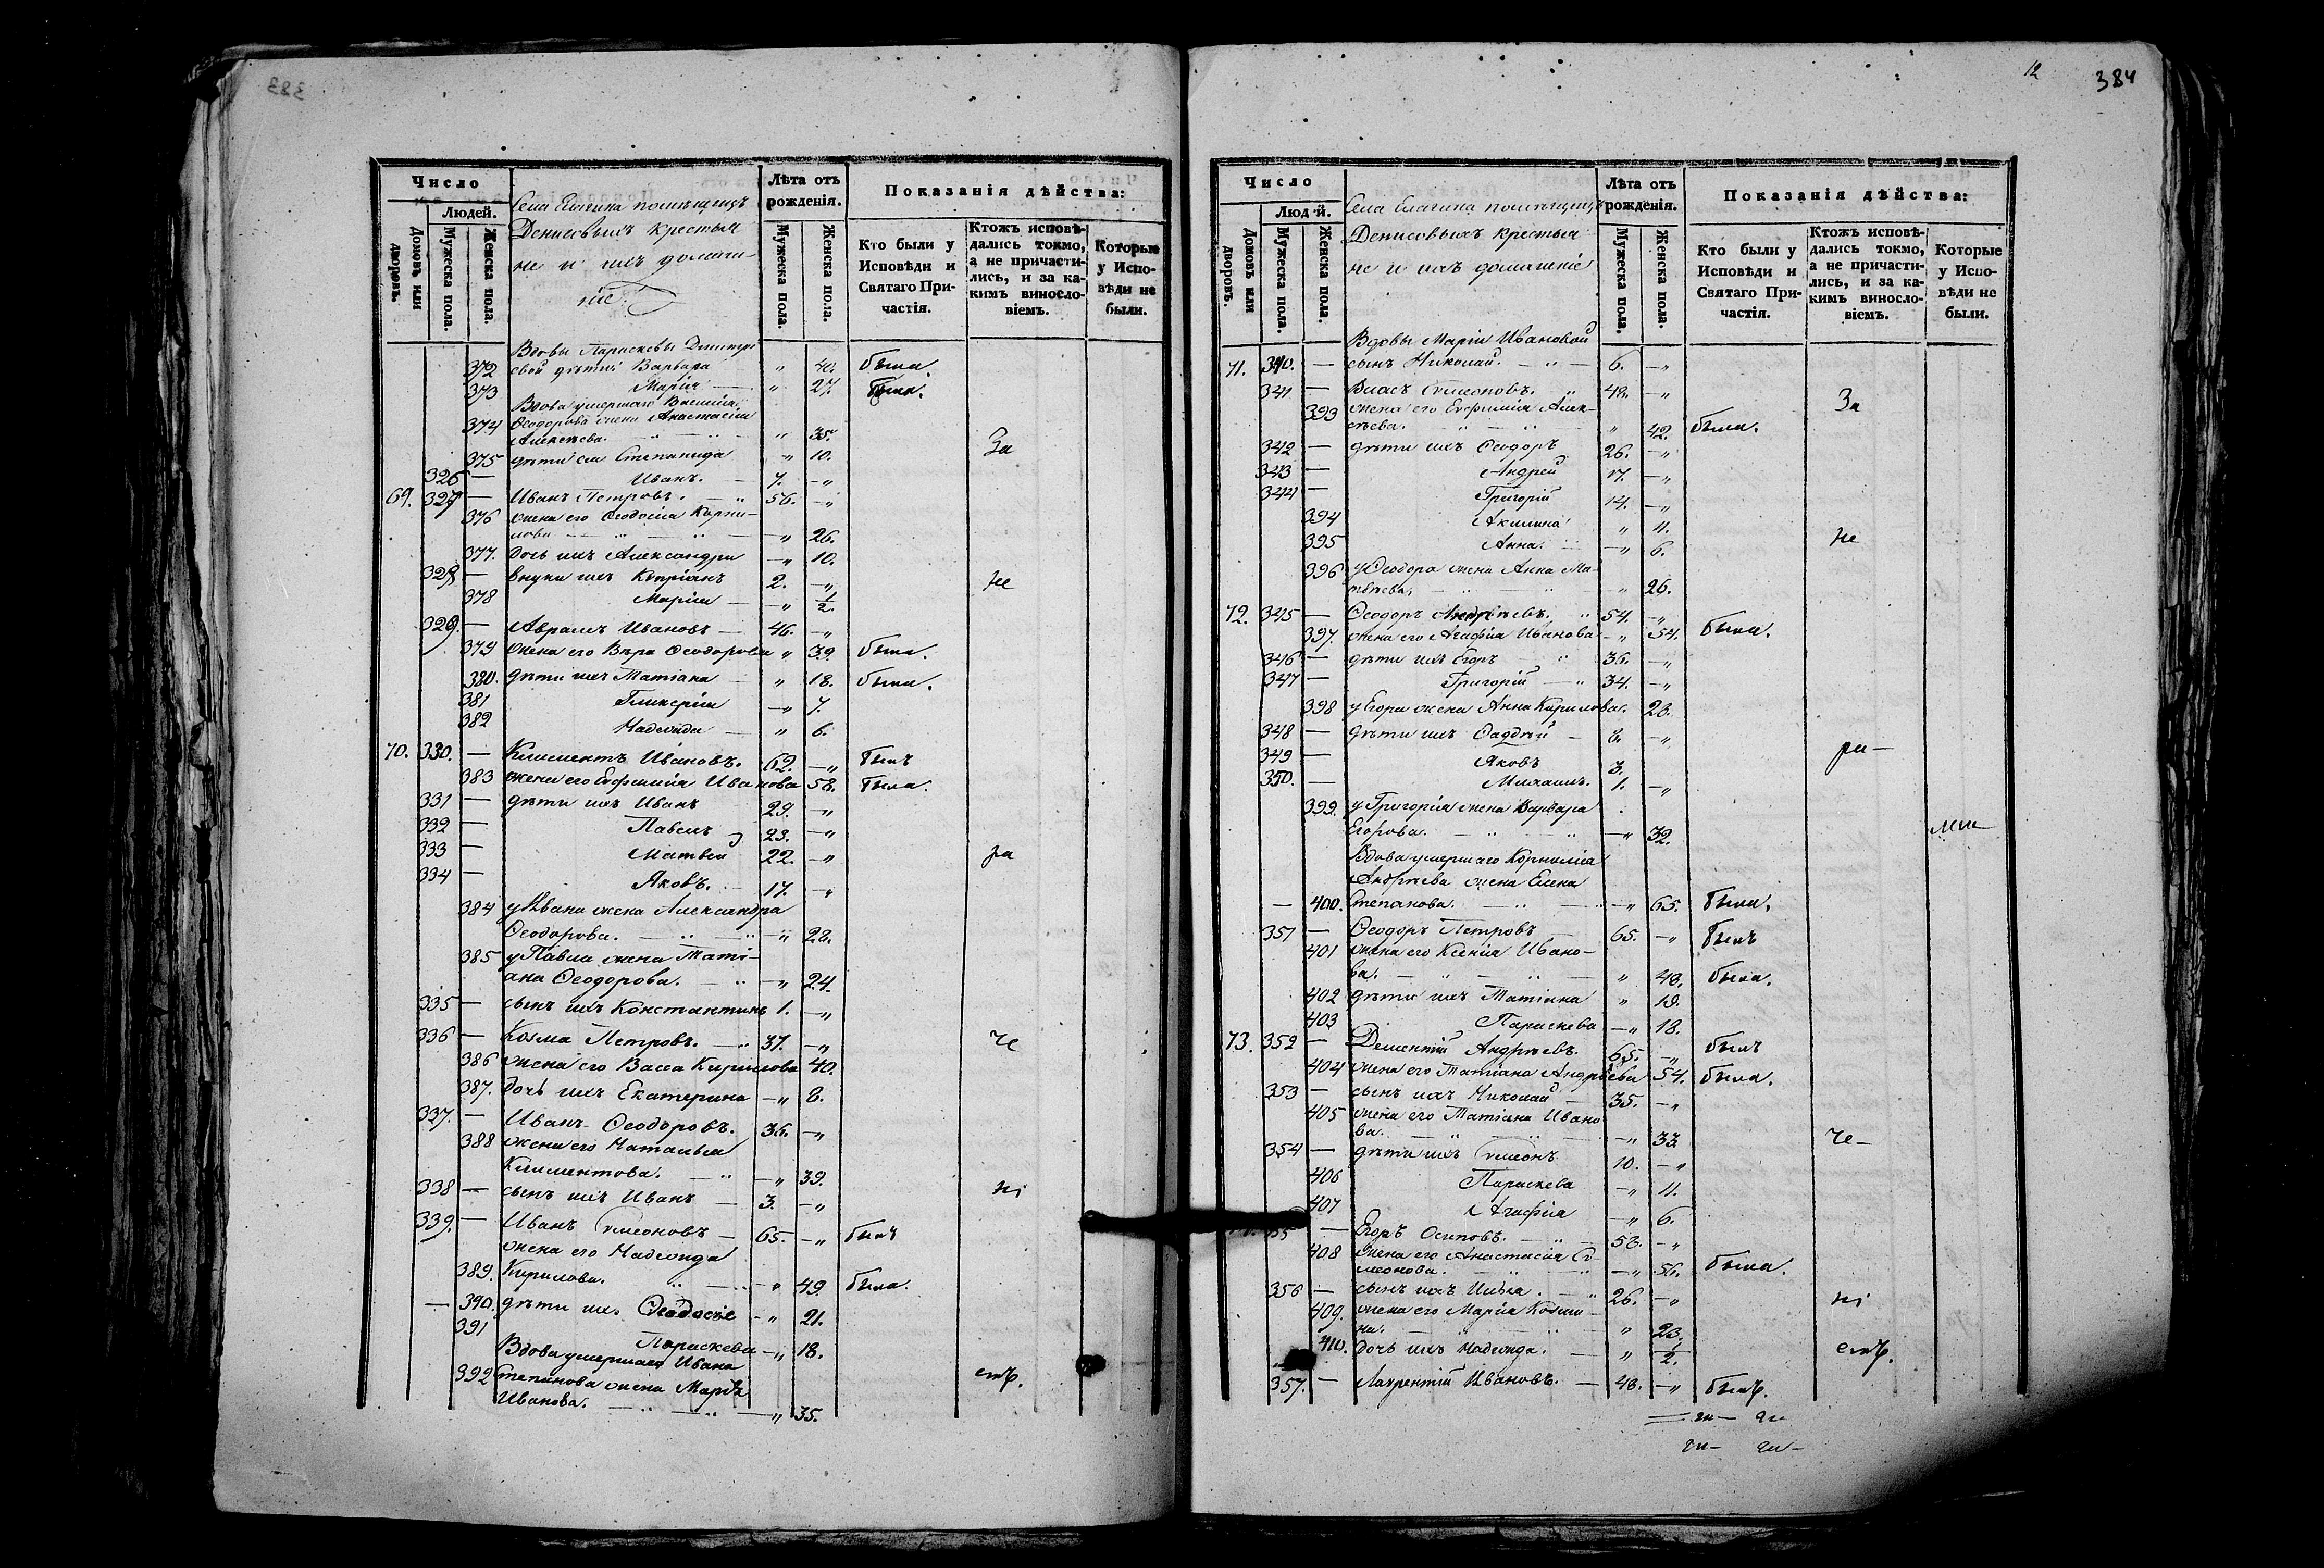 383
Число
Людей.
Домовъ или дворовъ.
Мужеска пола.
Женска пола.
Села Елагина помѣщицъ
Денисовыхъ крестья
не и ихъ домаш-
ніе.
Лѣта отъ
рожденія.
Мужеска пола.
Женска пола.
Показанія дѣйства:
Кто были у
Исповѣди и
Святаго При-
частія.
Ктожъ исповѣ-
дались токмо,
а не причасти-
лись, и за ка-
кимъ виносло-
віемъ.
Которые
у Испо-
вѣди не
были.
Вдовы Параскевы Димитрі
372 евой дѣти: Варвара " 40. была.
373 Марія — " 27. была.
Вдова умершаго Василія
374 Ѳеодорова жена Анастасія
Алексѣева. — " 35.
375 дѣти ея Степанида — " 10. За
326 — Иванъ. — 7. — "
69. 327 — Иванъ Петровъ. — " 56. — "
376 жена его Ѳеодосія Корни-
лова — " — " 26.
377. дочь ихъ Александра — " 10.
328 — внуки ихъ Кипріанъ 2. — " не
378 Марія — " 1/2.
329. — Аврамъ Ивановъ — 46. — "
379 жена его Вѣра Ѳеодорова " 39. была.
380. дѣти ихъ Татіана — " 18. была.
381 Гликерія — " 7.
382 Надежда — " 6.
70. 330. — Климентъ Ивановъ. 62. — " былъ
383 жена его Евфимія Иванова 58. была.
331 — дѣти ихъ Иванъ 29. — "
332 — Павелъ 23. — "
333 — Матвей 22. — " ра
334 — Яковъ. — 17. — "
384 у Ивана жена Александра
Ѳеодорова. — " — " 28.
385 у Павла жена Таті-
ана Ѳеодорова. — " — " 24.
335 — сынъ ихъ Константинъ 1. — "
336 — Козма Петровъ. — " 37. — " че
386 жена его Васса Кирилова 40.
387. дочь ихъ Екатерина — " 8.
337. — Иванъ Ѳеодоровъ. 36. — "
388 жена его Наталья
Климентова. — " — " 39.
338 — сынъ ихъ Иванъ — 3. — " ні
339. — Иванъ Симеоновъ — 65. — " былъ
жена его Надежда
389. Кирилова. " — " 49. была.
— 390. дѣти ихъ Ѳеодосіе — " 21.
391 Параскева — " 18.
Вдова умершаго Ивана
392 Степанова жена Марѳа емъ.
Иванова. — " — " — " 35.
12 384
Число
Люд й.
Домовъ или дворовъ.
Мужеска пола.
Женска пола.
Села Елагина помѣщицъ
Денисовыхъ крестья
не и ихъ домашніе
Лѣта отъ
рожденія.
Мужеска пола.
Женска пола.
Показанія дѣйства:
Кто были у
Исповѣди и
Святаго При-
частія.
Ктожъ исповѣ-
дались токмо,
а не причасти-
лись, и за ка-
кимъ виносло-
віемъ.
Которые
у Испо-
вѣди не
были.
Вдовы Маріи Ивановой
71. 340. — сынъ Николай. — " — 6. — "
341 — Власъ Симеоновъ. " 48. — " За
393 жена его Евфимія Алек-
сѣева. " — " — " 42. была.
342 — дѣти ихъ Ѳеодоръ 26. — "
343 — Андрей 17. — "
344 — Григорій 14. — "
394 Акилина " 11.
395 Анна. — " 6. не
396 у Ѳеодора жена Анна Ма-
тѣева. — " — " 26.
72. 345 — Ѳеодоръ Андрѣевъ. " 54. — "
397. жена его Агафія Иванова — " 54. была.
346 — дѣти ихъ Егоръ " 36. — "
347 — Григорій — " 34. — "
398 у Егора жена Анна Кирилова. 28.
348 — дѣти ихъ Фаддѣй — 8. — "
349 — Яковъ 3. ра—
350. — Михаилъ. 1. — "
399. у Григорія жена Варвара
Егорова. — " — " — " 32. ли
Вдова умершаго Корнилія
Андрѣева жена Елена
— 400. Степанова. — " — " — " 65. была.
351 — Ѳеодоръ Петровъ 65. — " былъ
401 жена его Ксенія Ивано-
ва. — " — " — " 48. была.
402 дѣти ихъ Татіана " 19.
403 Параскева — " 18.
73. 352 — Дементій Андрѣевъ. 65. — " былъ
404 жена его Татіана Андрѣева 54. была.
353 — сынъ ихъ Николай — 35. — "
405 жена его Татіана Ивано
ва. — " — " — " 33. че—
354 — дѣти ихъ Симеонъ 10. — "
406 Параскева — " 11.
407 Агафія — " 6.
55 — Егоръ Осиповъ. — " 53. — "
408 жена его Анастасія Си-
меонова. — " — " 56. была.
356 — сынъ ихъ Илья. — " 26. — " ні
409. жена его Марія Козми-
на. — " — " " 23.
410. дочь ихъ Надежда. — " 1/2. емъ.
357. — Лаврентій Ивановъ. — 48. — " былъ.